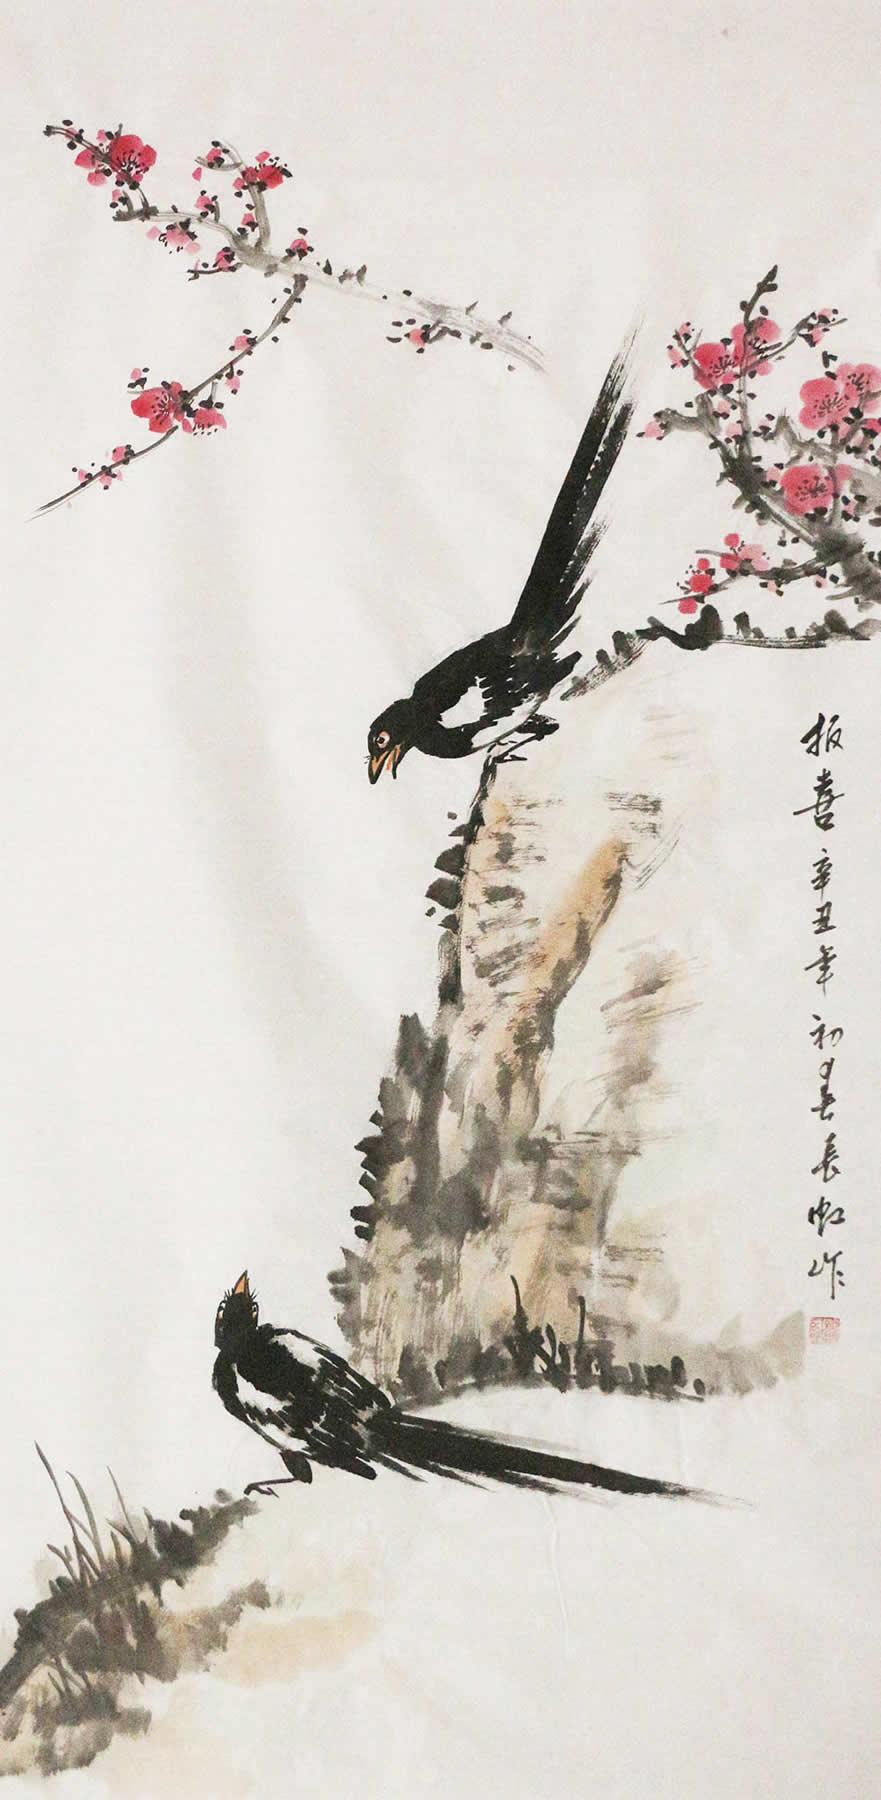 报喜 辛丑年初春 长虹作